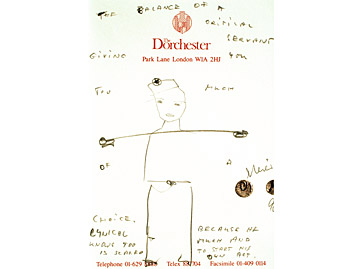 THE BALANCE OF A CRITICAL SERVANT
GIVING YOU
The
Dorchester
Park Lane London W1A 2HJ
TOO MUCH
OF A
CHOICE,
CYNICAL
KNOWS TOO
IS SCARED
BECAUSE HE
MUCH AND
TO START HIS
OWN ART
Telephone 01-629
Telex
Facsimile 01-409 0114